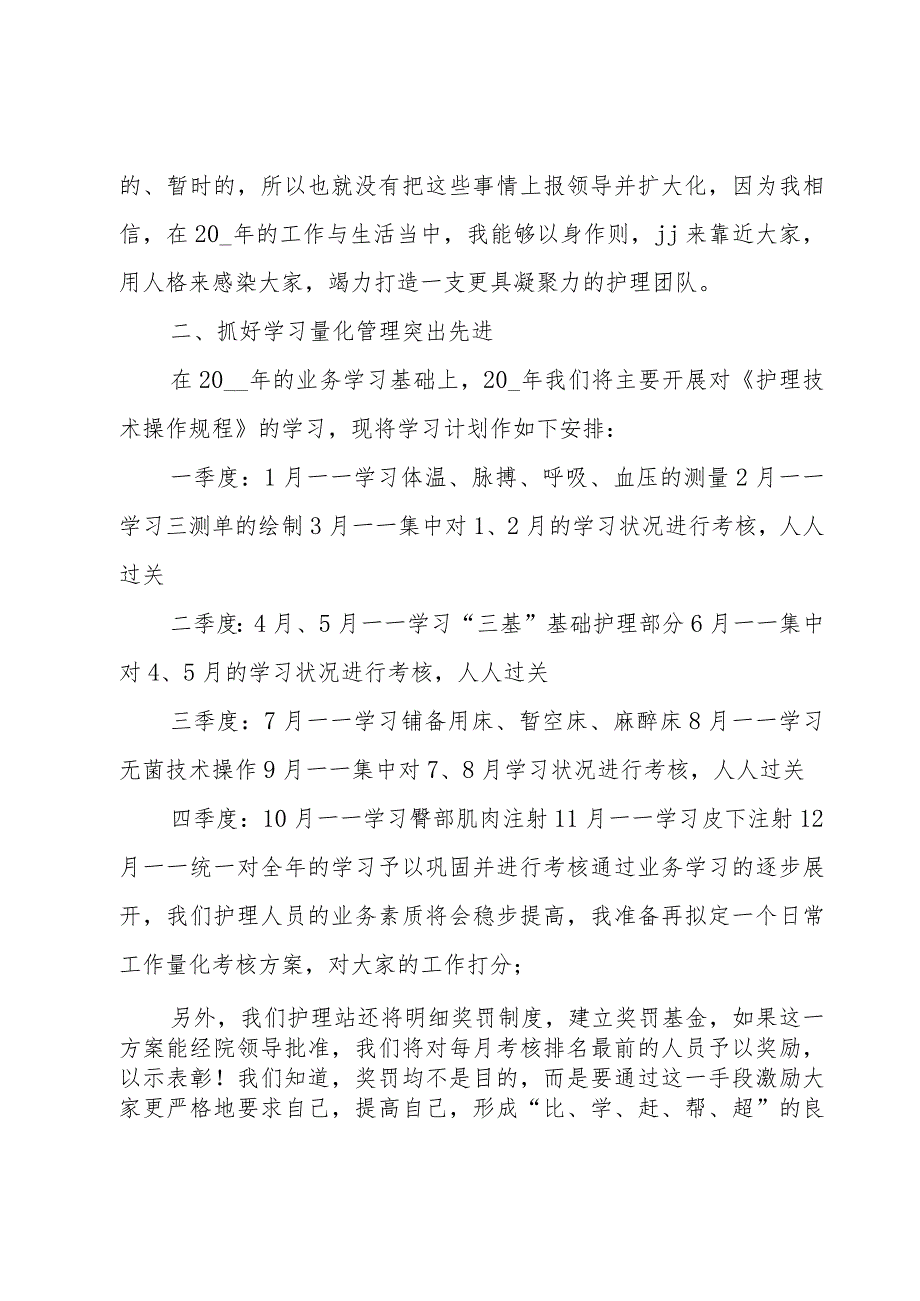 的、暂时的，所以也就没有把这些事情上报领导并扩大化，因为我相
信，在20_年的工作与生活当中，我能够以身作则，jj来靠近大家，
用人格来感染大家，竭力打造一支更具凝聚力的护理团队。
二、抓好学习量化管理突出先进
在20__年的业务学习基础上，20_年我们将主要开展对《护理技
术操作规程》的学习，现将学习计划作如下安排：
一季度：1月一一学习体温、脉搏、呼吸、血压的测量2月一一
学习三测单的绘制3月一一集中对1、2月的学习状况进行考核，人人
过关
二季度：4月、5月一一学习“三基”基础护理部分6月一一集中
对4、5月的学习状况进行考核，人人过关
三季度：7月一一学习铺备用床、暂空床、麻醉床8月一一学习
无菌技术操作9月一一集中对7、8月学习状况进行考核，人人过关
四季度：10月一一学习臀部肌肉注射11月一一学习皮下注射12
月一一统一对全年的学习予以巩固并进行考核通过业务学习的逐步展
开，我们护理人员的业务素质将会稳步提高，我准备再拟定一个日常
工作量化考核方案，对大家的工作打分；
另外，我们护理站还将明细奖罚制度，建立奖罚基金，如果这一
方案能经院领导批准，我们将对每月考核排名最前的人员予以奖励，
以示表彰！我们知道，奖罚均不是目的，而是要通过这一手段激励大
家更严格地要求自己，提高自己，形成“比、学、赶、帮、超”的良